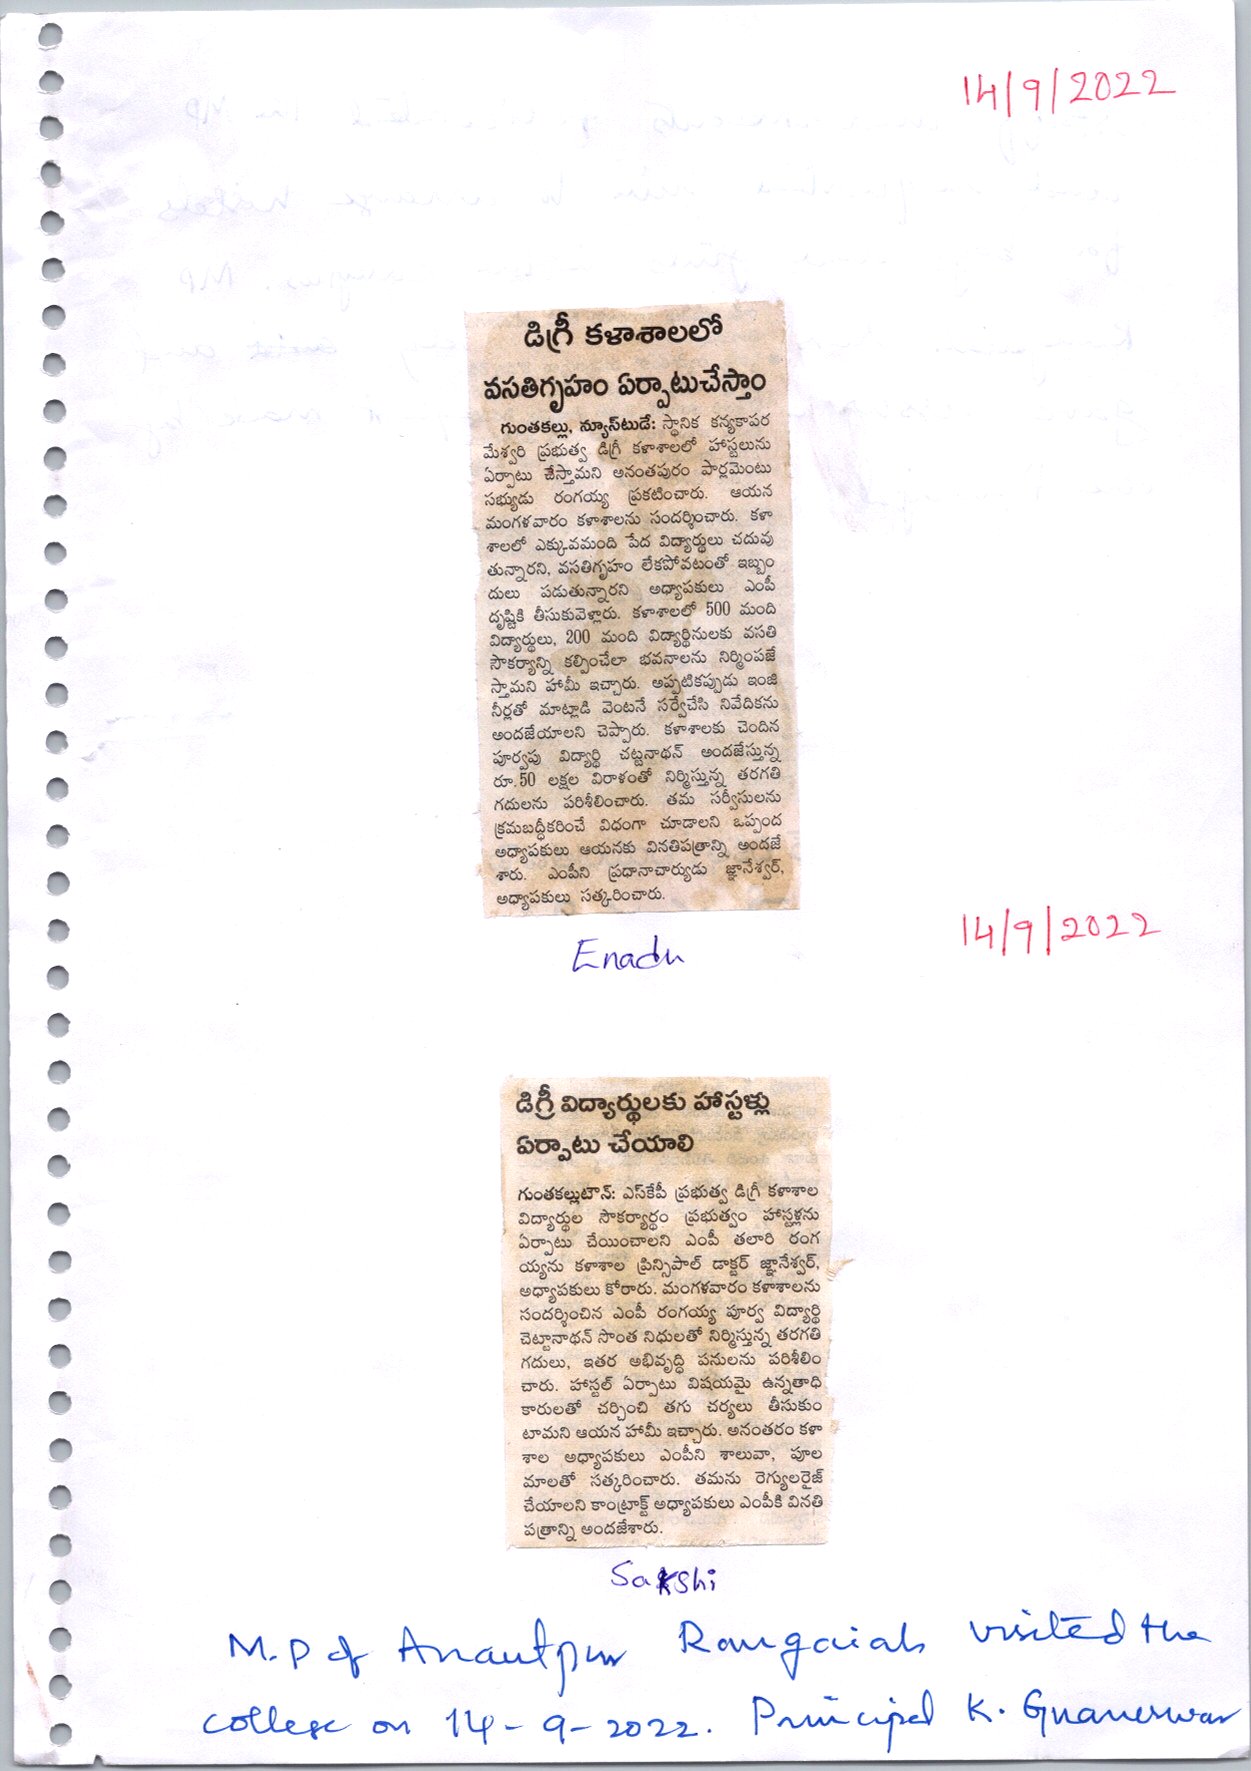 14/9/2022
డిగ్రీ కళాశాలలో
వసతిగృహం ఏర్పాటుచేస్తాం
గుంతకల్లు, న్యూస్‌టుడే: స్థానిక కన్యకాపర
మేశ్వరి ప్రభుత్వ డిగ్రీ కళాశాలలో హాస్టలును
ఏర్పాటు చేస్తామని అనంతపురం పార్లమెంటు
సభ్యుడు రంగయ్య ప్రకటించారు. ఆయన
మంగళవారం కళాశాలను సందర్శించారు. కళా
శాలలో ఎక్కువమంది పేద విద్యార్థులు చదువు
తున్నారని, వసతిగృహం లేకపోవటంతో ఇబ్బం
దులు పడుతున్నారని అధ్యాపకులు ఎంపీ
దృష్టికి తీసుకువెళ్లారు. కళాశాలలో 500 మంది
విద్యార్థులు, 200 మంది విద్యార్థినులకు వసతి
సౌకర్యాన్ని కల్పించేలా భవనాలను నిర్మింపజే
స్తామని హామీ ఇచ్చారు. అప్పటికప్పుడు ఇంజి
నీర్లతో మాట్లాడి వెంటనే సర్వేచేసి నివేదికను
అందజేయాలని చెప్పారు. కళాశాలకు చెందిన
పూర్వపు విద్యార్థి చట్టనాథన్ అందజేస్తున్న
రూ.50 లక్షల విరాళంతో నిర్మిస్తున్న తరగతి
గదులను పరిశీలించారు. తమ సర్వీసులను
క్రమబద్ధీకరించే విధంగా చూడాలని ఒప్పంద
అధ్యాపకులు ఆయనకు వినతిపత్రాన్ని అందజే
శారు. ఎంపీని ప్రధానాచార్యుడు జ్ఞానేశ్వర్,
అధ్యాపకులు సత్కరించారు.
Enadu
14/9/2022
డిగ్రీ విద్యార్థులకు హాస్టళ్లు
ఏర్పాటు చేయాలి
గుంతకల్లుటౌన్: ఎస్‌కేపీ ప్రభుత్వ డిగ్రీ కళాశాల
విద్యార్థుల సౌకర్యార్థం ప్రభుత్వం హాస్టళ్లను
ఏర్పాటు చేయించాలని ఎంపీ తలారి రంగ
య్యను కళాశాల ప్రిన్సిపాల్ డాక్టర్ జ్ఞానేశ్వర్,
అధ్యాపకులు కోరారు. మంగళవారం కళాశాలను
సందర్శించిన ఎంపీ రంగయ్య పూర్వ విద్యార్థి
చెట్టానాథన్ సొంత నిధులతో నిర్మిస్తున్న తరగతి
గదులు, ఇతర అభివృద్ధి పనులను పరిశీలిం
చారు. హాస్టల్ ఏర్పాటు విషయమై ఉన్నతాధి
కారులతో చర్చించి తగు చర్యలు తీసుకుం
టామని ఆయన హామీ ఇచ్చారు. అనంతరం కళా
శాల అధ్యాపకులు ఎంపీని శాలువా, పూల
మాలతో సత్కరించారు. తమను రెగ్యులరైజ్
చేయాలని కాంట్రాక్ట్ అధ్యాపకులు ఎంపీకి వినతి
పత్రాన్ని అందజేశారు.
Sakshi
M.P of Anantpur Rangaiah visited the
college on 14-9-2022. Principal K. Gnaneswar